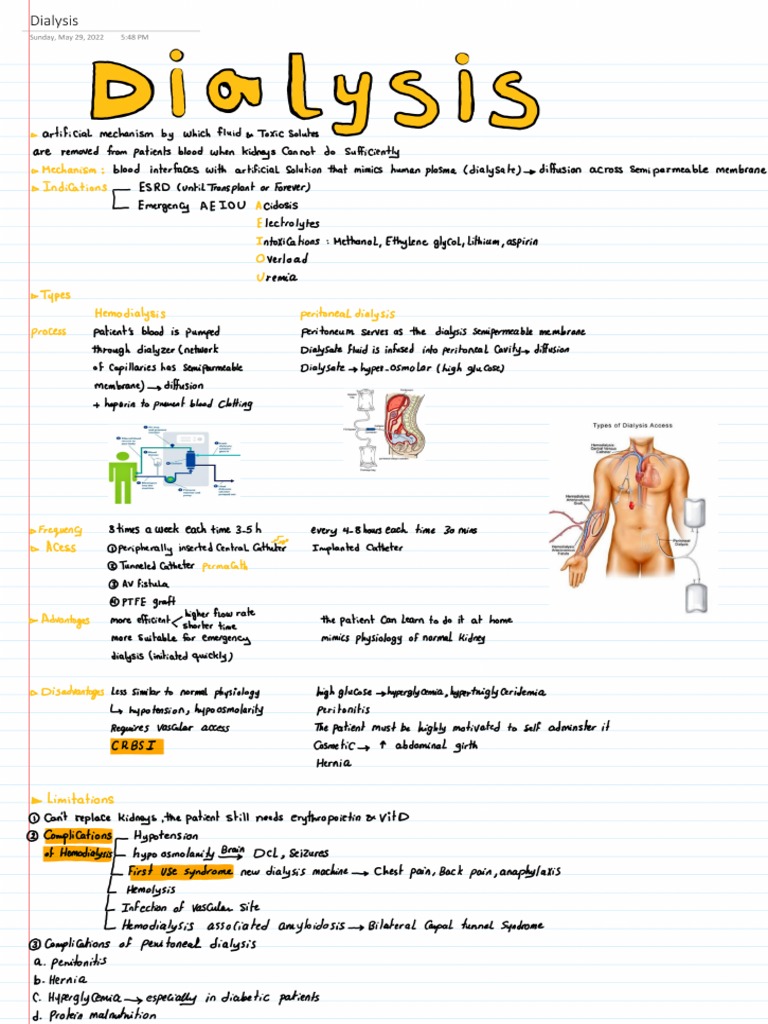 Dialysis
Sunday, May 29, 2022 5:48 PM
Dialysis
artificial mechanism by which fluid & Toxic Solutes
are removed from patients blood when kidneys Cannot do Sufficiently
Mechanism : blood interfaces with artificial Solution that mimics human plasma (dialysate) → diffusion across semipermeable membrane
Indications ESRD (until Transplant or Forever)
Emergency AEIOU Acidosis
Electrolytes
Intoxications : Methanol, Ethylene glycol, Lithium, aspirin
Overload
Uremia
Types
Hemodialysis peritoneal dialysis
process patient's blood is pumped Peritoneum serves as the dialysis semipermeable membrane
through dialyzer (network Dialysate fluid is infused into peritoneal Cavity → diffusion
of Capillaries has semipermeable Dialysate → hyper-osmolar (high glucose)
membrane) → diffusion
+ heparin to prevent blood Clotting
Types of Dialysis Access
Hemodialysis
Central Venous
Catheter
Hemodialysis
Arteriovenous
Graft
Hemodialysis
Arteriovenous
Fistula
Peritoneal
Dialysis
Frequency 3 times a week each time 3-5 h every 4-8 hours each time 30 mins
Acess ① peripherally inserted Central Catheter Implanted Catheter
② Tunneled Catheter permacath
③ AV fistula
④ PTFE graft
Advantages more efficient higher flow rate the patient Can learn to do it at home
shorter time
more Suitable for emergency mimics physiology of normal kidney
dialysis (initiated quickly)
Disadvantages Less similar to normal physiology high glucose → hyperglycemia, hypertriglyceridemia
↳ hypotension, hypoosmolarity Peritonitis
Requires vascular access The patient must be highly motivated to self adminster it
CRBSI Cosmetic → ↑ abdominal girth
Hernia
Limitations
① Can't replace kidneys, the patient still needs erythropoietin & Vit D
② Complications of Hemodialysis Hypotension
hypo osmolarity Brain → DCL, Seizures
First Use Syndrome new dialysis machine → Chest pain, Back pain, anaphylaxis
Hemolysis
Infection of vascular Site
Hemodialysis associated amyloidosis → Bilateral Carpal tunnel Syndrome
③ Complications of peritoneal dialysis
a. peritonitis
b. Hernia
C. Hyperglycemia → especially in diabetic patients
d. Protein malnutrition